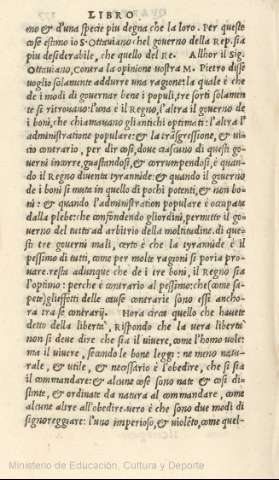 LIBRO
eno & d'una specie piu degna che la loro. Per queste
cose estimo io S. Ottauiano, chel gouerno della Rep. sia
piu desiderabile, che quello del Re. Allhor il Sig.
Ottauiano, Contra la opinione uostra M. Pietro disse
uoglio solamente addurre una ragione: la quale è che
de i modi di gouernar bene i populi, tre sorti solamen
te si ritrouano: l'una è il Regno, l'altra il gouerno de
i boni, che chiamauano gli antichi optimati: l'altra l'
administratione populare: & la trasgressione, & ui-
cio contrario, per dir cosi, doue ciascuno di questi go
uerni incorre, guastandosi, & corrumpendosi, è quan-
do il Regno diuenta tyrannide: & quando il gouerno
de i boni si muta in quello di pochi potenti, & non bo
ni: & quando l'administration populare è occupata
dalla plebe: che confundendo gli ordini, permette il go
uerno del tutto ad arbitrio della moltitudine. di que
sti tre gouerni mali, certo è che la tyrannide è il
pessimo di tutti, come per molte ragioni si poria pro
uare. resta adunque che de i tre boni, il Regno sia
l'optimo: perche è contrario al pessimo: che (come sa-
pete) gli effetti delle cause contrarie sono essi ancho-
ra tra se contrarij. Hora circa quello che hauete
detto della liberta, Rispondo che la uera liberta
non si deue dire che sia il uiuere, come l'homo uole:
ma il uiuere, secondo le bone leggi: ne meno natu-
rale, & utile, & necessario è l'obedire, che si sia
il commandare: & alcune cose sono nate & cosi di-
stinte, & ordinate da natura al commandare, come
alcune altre all'obedire. uero è che sono due modi di
signoreggiare: l'uno imperioso, & uioleto, come quel-
Ministerio de Educación, Cultura y Deporte